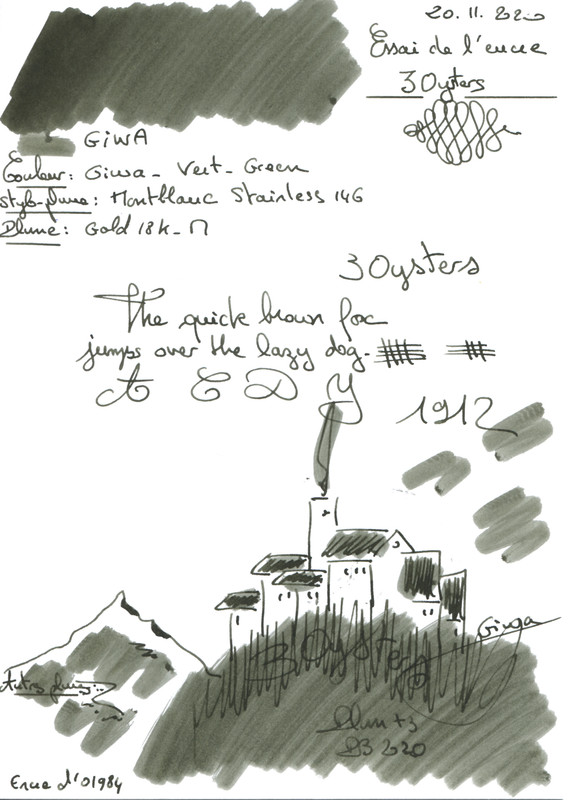 20.11.2020
Essai de l'encre
3 Oysters
GiWA
Couleur: Giwa - Vert - Green
Stylo-plume: Montblanc Stainless 146
Plume: Gold 18k - M
3 Oysters
The quick brown fox
jumps over the lazy dog.
A C D Y
1912
Giwa
3 Oysters
Autres plumes
2020
Encre d'O1984